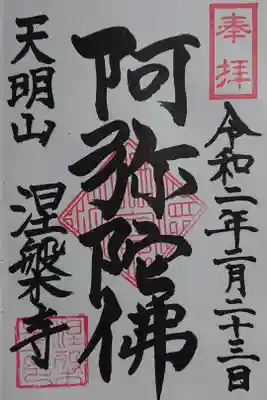 奉拝
令和二年二月二十三日
阿弥陀佛
天明山
涅槃寺